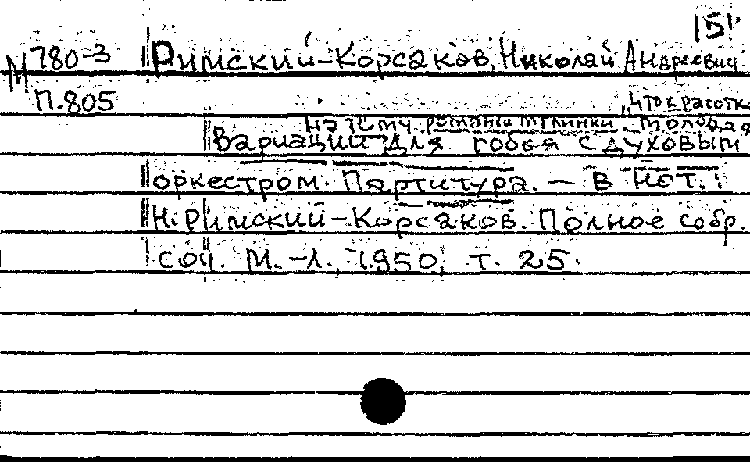 151
М 780-3 Римский-Корсаков, Николай Андреевич
П.805
"Что красотка
на тему романса Глинки молодая
Вариации для гобоя с духовым
оркестром. Партитура. – В нот.:
Н. Римский-Корсаков. Полное собр.
соч. М.-Л., 1950, т. 25.